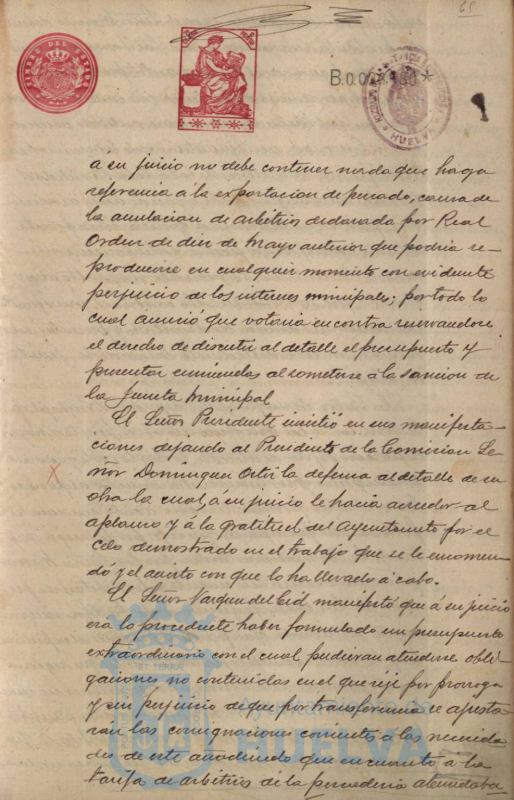 65
TIMBRE DEL ESTADO
B.0.002.180*
HUELVA
á su juicio no debe contener nada que haga
referencia á la exportacion de pescado, causa de
la anulacion de arbitrios declarada por Real
Orden de diez de Mayo anterior que podria re-
producirse en cualquier momento con evidente
perjuicio de los intereses municipales; por todo lo
cual anunció que votaria en contra reservandose
el derecho de discutir al detalle el presupuesto y
presentar enmiendas al someterse á la sancion de
la Junta Municipal
El Señor Presidente insistió en sus manifesta-
ciones dejando al Presidente de la Comision Se-
ñor Dominguez Ortiz la defensa al detalle de su
obra la cual, á su juicio le hacia acreedor al
aplauso y á la gratitud del Ayuntamiento por el
celo demostrado en el trabajo que se le encomen-
dó y el acierto con que lo ha llevado á cabo.
El Señor Vazquez del Cid manifestó que á su juicio
era lo procedente haber formulado un presupuesto
extraordinario con el cual pudieran atenderse obli-
gaciones no contenidas en el que rije por prorroga
y sin perjuicio de que por transferencias se ajusta-
ran las consignaciones corrientes á las necesida-
des de este añadiendo que en cuanto á la
tarifa de arbitrios de la pescaderia abundaba
ET TERRA
Ayuntamiento de
HUELVA